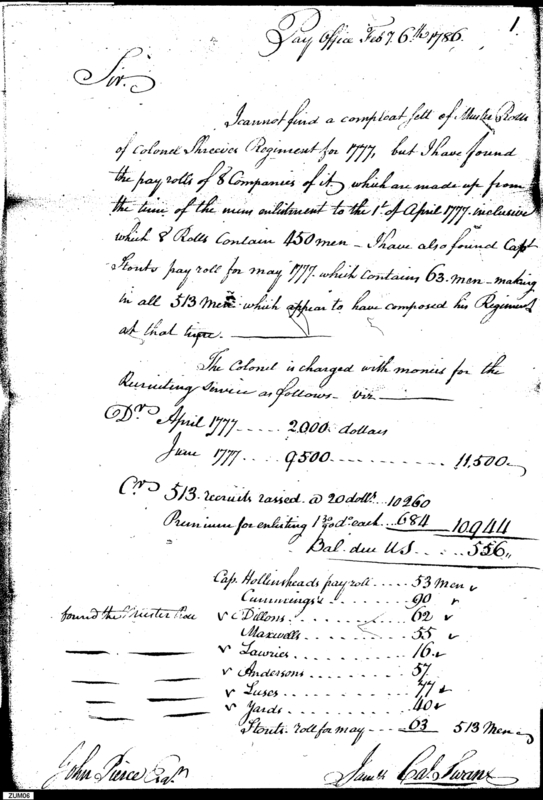 1
Pay Office Feby. 6th 1786.
Sir.
I cannot find a compleat sett of Muster Rolls
of Colonel Shreeves Regiment for 1777, but I have found
the pay rolls of 8 Companies of it, which are made up from
the time of the mens enlistment to the 1st of April 1777 inclusive
which 8 Rolls contain 450 men - I have also found Capt
Stouts pay roll for may 1777 which contains 63 men - making
in all 513 Men which appear to have composed his Regiment
at that time.
The Colonel is charged with monies for the
Recruiting Service as follows - viz -
Dr. April 1777 .... 2000 dollars
June 1777 .... 9500 .......... 11,500
Cr. 513 recruits raised @ 20 dolls. 10260
Premium for enlisting each .. 684 10944
Bal. due US .... 556
Cap. Hollensheads pay roll .... 53 men
Cummings's ........ 90
found the Muster Roll Dillons ........ 62
Maxwells ........ 55
Lawries ........ 16
Andersons ........ 57
Luses ........ 77
Yards ........ 40
Stouts roll for may .... 63 513 Men
John Pierce Esqr. Swanx
ZUM06